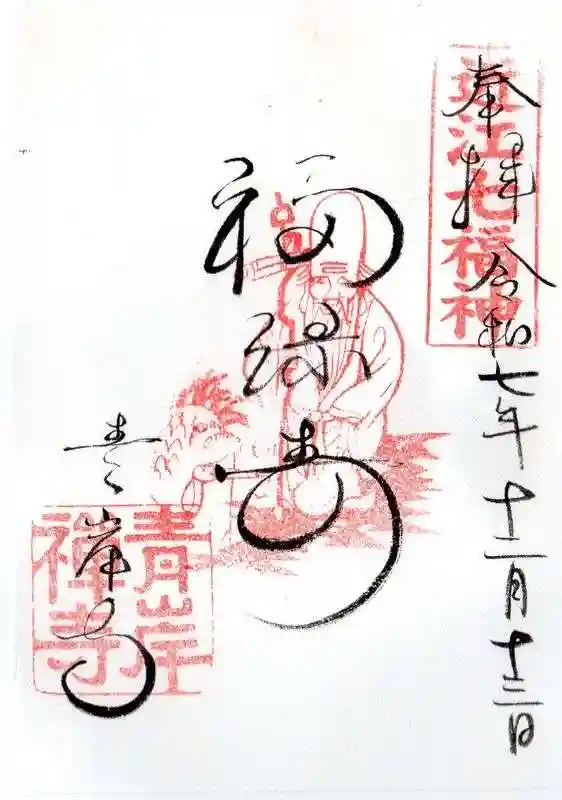 奉拝 令和七年十二月十三日
近江七福神
福禄寿
青岸寺
青岸
禅寺